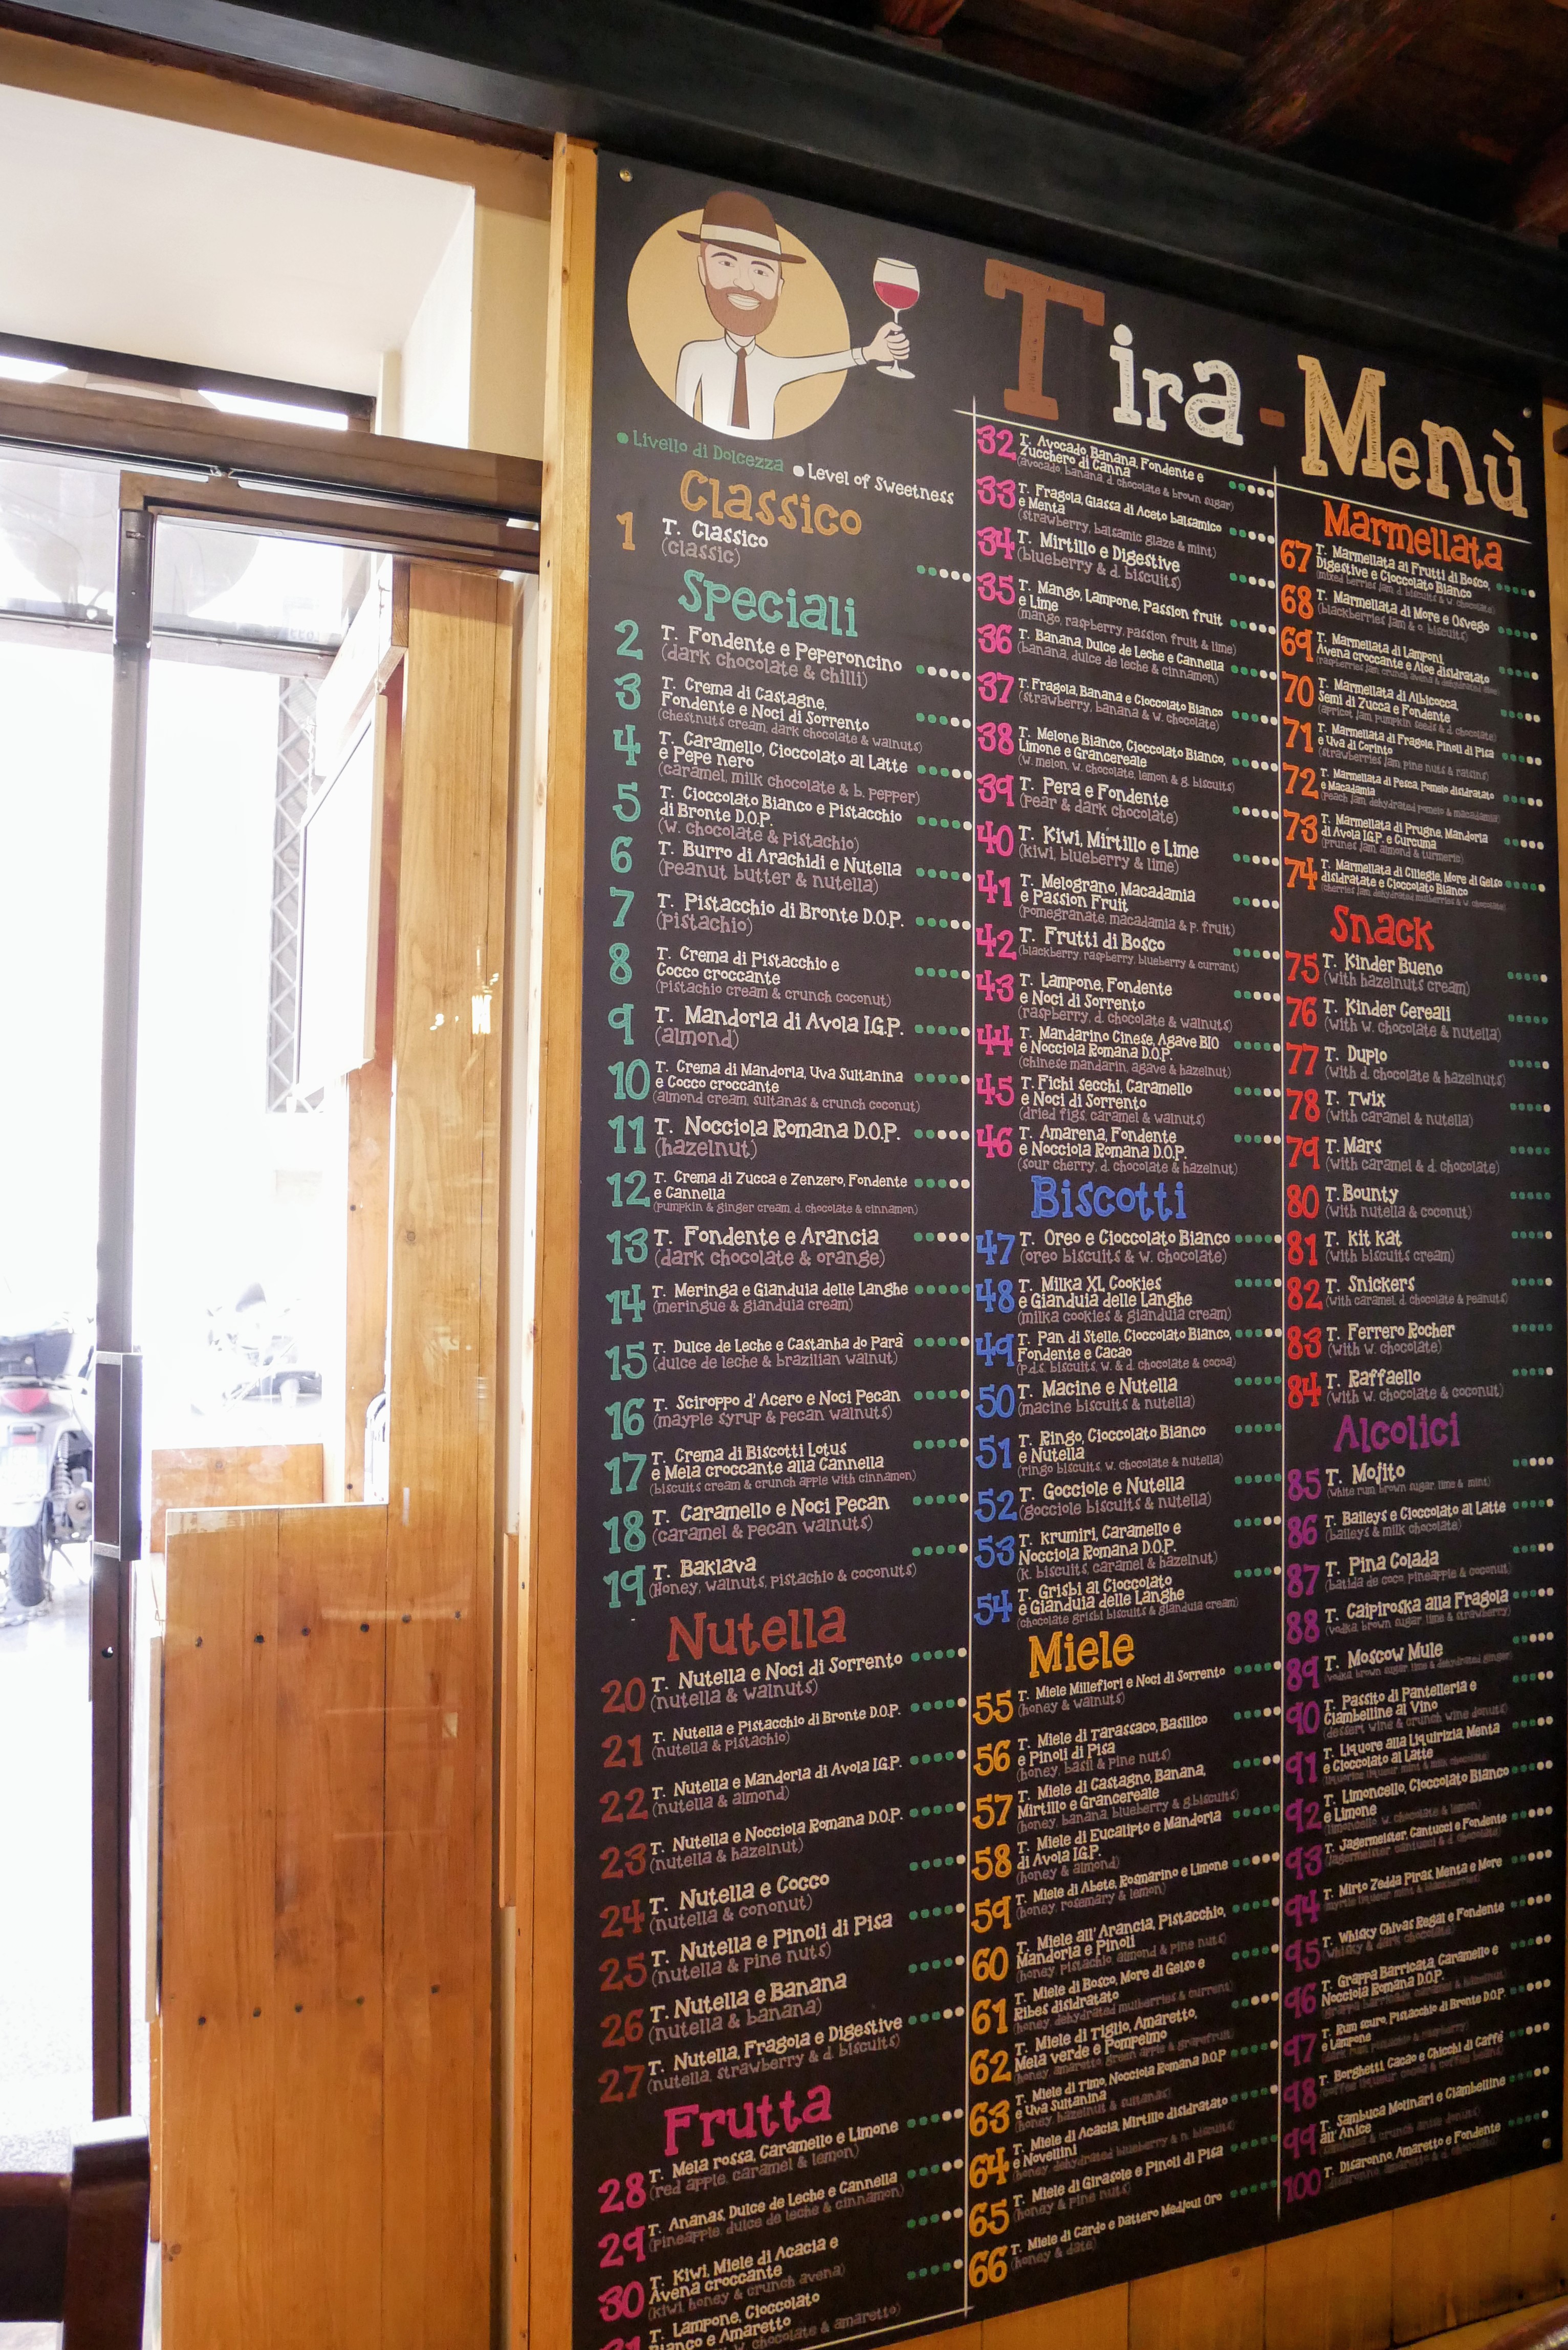 Tira-Menù
Livello di Dolcezza
Level of Sweetness
Classico
1 T. Classico
(classic)
Speciali
2 T. Fondente e Peperoncino
(dark chocolate & chilli)
3 T. Crema di Castagne,
Fondente e Noci di Sorrento
(chestnuts cream, dark chocolate & walnuts)
4 T. Caramello, Cioccolato al Latte
e Pepe nero
(caramel, milk chocolate & b. pepper)
5 T. Cioccolato Bianco e Pistacchio
di Bronte D.O.P.
(w. chocolate & pistachio)
6 T. Burro di Arachidi e Nutella
(peanut butter & nutella)
7 T. Pistacchio di Bronte D.O.P.
(pistachio)
8 T. Crema di Pistacchio e
Cocco croccante
(pistachio cream & crunch coconut)
9 T. Mandorla di Avola I.G.P.
(almond)
10 T. Crema di Mandorla, Uva Sultanina
e Cocco croccante
(almond cream, sultanas & crunch coconut)
11 T. Nocciola Romana D.O.P.
(hazelnut)
12 T. Crema di Zucca e Zenzero, Fondente
e Cannella
(pumpkin & ginger cream, d. chocolate & cinnamon)
13 T. Fondente e Arancia
(dark chocolate & orange)
14 T. Meringa e Gianduia delle Langhe
(meringue & gianduia cream)
15 T. Dulce de Leche e Castanha do Parà
(dulce de leche & brazilian walnut)
16 T. Sciroppo d' Acero e Noci Pecan
(mayple syrup & pecan walnuts)
17 T. Crema di Biscotti Lotus
e Mela croccante alla Cannella
(biscuits cream & crunch apple with cinnamon)
18 T. Caramello e Noci Pecan
(caramel & pecan walnuts)
19 T. Baklava
(Honey, walnuts, pistachio & coconuts)
Nutella
20 T. Nutella e Noci di Sorrento
(nutella & walnuts)
21 T. Nutella e Pistacchio di Bronte D.O.P.
(nutella & pistachio)
22 T. Nutella e Mandorla di Avola I.G.P.
(nutella & almond)
23 T. Nutella e Nocciola Romana D.O.P.
(nutella & hazelnut)
24 T. Nutella e Cocco
(nutella & cononut)
25 T. Nutella e Pinoli di Pisa
(nutella & pine nuts)
26 T. Nutella e Banana
(nutella & banana)
27 T. Nutella, Fragola e Digestive
(nutella, strawberry & d. biscuits)
Frutta
28 T. Mela rossa, Caramello e Limone
(red apple, caramel & lemon)
29 T. Ananas, Dulce de Leche e Cannella
(pineapple, dulce de leche & cinnamon)
30 T. Kiwi, Miele di Acacia e
Avena croccante
(kiwi, honey & crunch avena)
31 T. Lampone, Cioccolato
Bianco e Amaretto
w. chocolate & amaretto)
32 T. Avocado, Banana, Fondente e
Zucchero di Canna
(avocado, banana, d. chocolate & brown sugar)
33 T. Fragola, Glassa di Aceto balsamico
e Menta
(strawberry, balsamic glaze & mint)
34 T. Mirtillo e Digestive
(blueberry & d. biscuits)
35 T. Mango, Lampone, Passion fruit
e Lime
(mango, raspberry, passion fruit & lime)
36 T. Banana, Dulce de Leche e Cannella
(banana, dulce de leche & cinnamon)
37 T. Fragola, Banana e Cioccolato Bianco
(strawberry, banana & w. chocolate)
38 T. Melone Bianco, Cioccolato Bianco,
Limone e Grancereale
(w. melon, w. chocolate, lemon & g. biscuits)
39 T. Pera e Fondente
(pear & dark chocolate)
40 T. Kiwi, Mirtillo e Lime
(kiwi, blueberry & lime)
41 T. Melograno, Macadamia
e Passion Fruit
(pomegranate, macadamia & p. fruit)
42 T. Frutti di Bosco
(blackberry, raspberry, blueberry & currant)
43 T. Lampone, Fondente
e Noci di Sorrento
(raspberry, d. chocolate & walnuts)
44 T. Mandarino Cinese, Agave BIO
e Nocciola Romana D.O.P.
(chinese mandarin, agave & hazelnut)
45 T. Fichi secchi, Caramello
e Noci di Sorrento
(dried figs, caramel & walnuts)
46 T. Amarena, Fondente
e Nocciola Romana D.O.P.
(sour cherry, d. chocolate & hazelnut)
Biscotti
47 T. Oreo e Cioccolato Bianco
(oreo biscuits & w. chocolate)
48 T. Milka XL Cookies
e Gianduia delle Langhe
(milka cookies & gianduia cream)
49 T. Pan di Stelle, Cioccolato Bianco,
Fondente e Cacao
(p.d.s. biscuits, w. & d. chocolate & cocoa)
50 T. Macine e Nutella
(macine biscuits & nutella)
51 T. Ringo, Cioccolato Bianco
e Nutella
(ringo biscuits, w. chocolate & nutella)
52 T. Gocciole e Nutella
(gocciole biscuits & nutella)
53 T. Krumiri, Caramello e
Nocciola Romana D.O.P.
(k. biscuits, caramel & hazelnut)
54 T. Grisbì al Cioccolato
e Gianduia delle Langhe
(chocolate grisbì biscuits & gianduia cream)
Miele
55 T. Miele Millefiori e Noci di Sorrento
(honey & walnuts)
56 T. Miele di Tarassaco, Basilico
e Pinoli di Pisa
(honey, basil & pine nuts)
57 T. Miele di Castagno, Banana,
Mirtillo e Grancereale
(honey, banana, blueberry & g.biscuits)
58 T. Miele di Eucalipto e Mandorla
di Avola I.G.P.
(honey & almond)
59 T. Miele di Abete, Rosmarino e Limone
(honey, rosemary & lemon)
60 T. Miele all' Arancia, Pistacchio,
Mandorla e Pinoli
(honey, pistachio, almond & pine nuts)
61 T. Miele di Bosco, More di Gelso e
Ribes disidratato
(honey, dehydrated mulberries & currant)
62 T. Miele di Tiglio, Amaretto,
Mela verde e Pompelmo
(honey, amaretto, green apple & grapefruit)
63 T. Miele di Timo, Nocciola Romana D.O.P
e Uva Sultanina
(honey, hazelnut & sultanas)
64 T. Miele di Acacia, Mirtillo disidratato
e Novellini
(honey, dehydrated blueberry & n. biscuits)
65 T. Miele di Girasole e Pinoli di Pisa
(honey & pine nuts)
66 T. Miele di Cardo e Dattero Medjoul Oro
(honey & date)
Marmellata
67 T. Marmellata ai Frutti di Bosco,
Digestive e Cioccolato Bianco
(mixed berries jam, d. biscuits & w. chocolate)
68 T. Marmellata di More e Osvego
(blackberries jam & o. biscuits)
69 T. Marmellata di Lamponi,
Avena croccante e Aloe disidratato
(raspberries jam, crunch avena & dehydrated aloe)
70 T. Marmellata di Albicocca,
Semi di Zucca e Fondente
(apricot jam, pumpkin seeds & d. chocolate)
71 T. Marmellata di Fragole, Pinoli di Pisa
e Uva di Corinto
(strawberries jam, pine nuts & raisins)
72 T. Marmellata di Pesca, Pomelo disidratato
e Macadamia
(peach jam, dehydrated pomelo & macadamia)
73 T. Marmellata di Prugne, Mandorla
di Avola I.G.P. e Curcuma
(prunes jam, almond & turmeric)
74 T. Marmellata di Ciliegie, More di Gelso
disidratate e Cioccolato Bianco
(cherries jam, dehydrated mulberries & w. chocolate)
Snack
75 T. Kinder Bueno
(with hazelnuts cream)
76 T. Kinder Cereali
(with w. chocolate & nutella)
77 T. Duplo
(with d. chocolate & hazelnuts)
78 T. Twix
(with caramel & nutella)
79 T. Mars
(with caramel & d. chocolate)
80 T. Bounty
(with nutella & coconut)
81 T. Kit Kat
(with biscuits cream)
82 T. Snickers
(with caramel, d. chocolate & peanuts)
83 T. Ferrero Rocher
(with w. chocolate)
84 T. Raffaello
(with w. chocolate & coconut)
Alcolici
85 T. Mojito
(white rum, brown sugar, lime & mint)
86 T. Baileys e Cioccolato al Latte
(baileys & milk chocolate)
87 T. Pina Colada
(batida de coco, pineapple & coconut)
88 T. Caipiroska alla Fragola
(vodka, brown sugar, lime & strawberry)
89 T. Moscow Mule
(vodka, brown sugar, lime & dehydrated ginger)
90 T. Passito di Pantelleria e
Ciambelline al Vino
(dessert wine & crunch wine donuts)
91 T. Liquore alla Liquirizia, Menta
e Cioccolato al Latte
92 T. Limoncello, Cioccolato Bianco
e Limone
(limoncello, w. chocolate & lemon)
93 T. Jagermeister, Cantucci e Fondente
(Jagermeister, cantucci & d. chocolate)
94 T. Mirto Zedda Piras, Menta e More
95 T. Whisky Chivas Regal e Fondente
(whisky & dark chocolate)
96 T. Grappa Barricata, Caramello e
Nocciola Romana D.O.P.
97 T. Rum scuro, Pistacchio di Bronte D.O.P.
e Lampone
98 T. Borghetti Cacao e Chicchi di Caffé
99 T. Sambuca Molinari e Ciambelline
all'Anice
100 T. Disaronno, Amaretto e Fondente